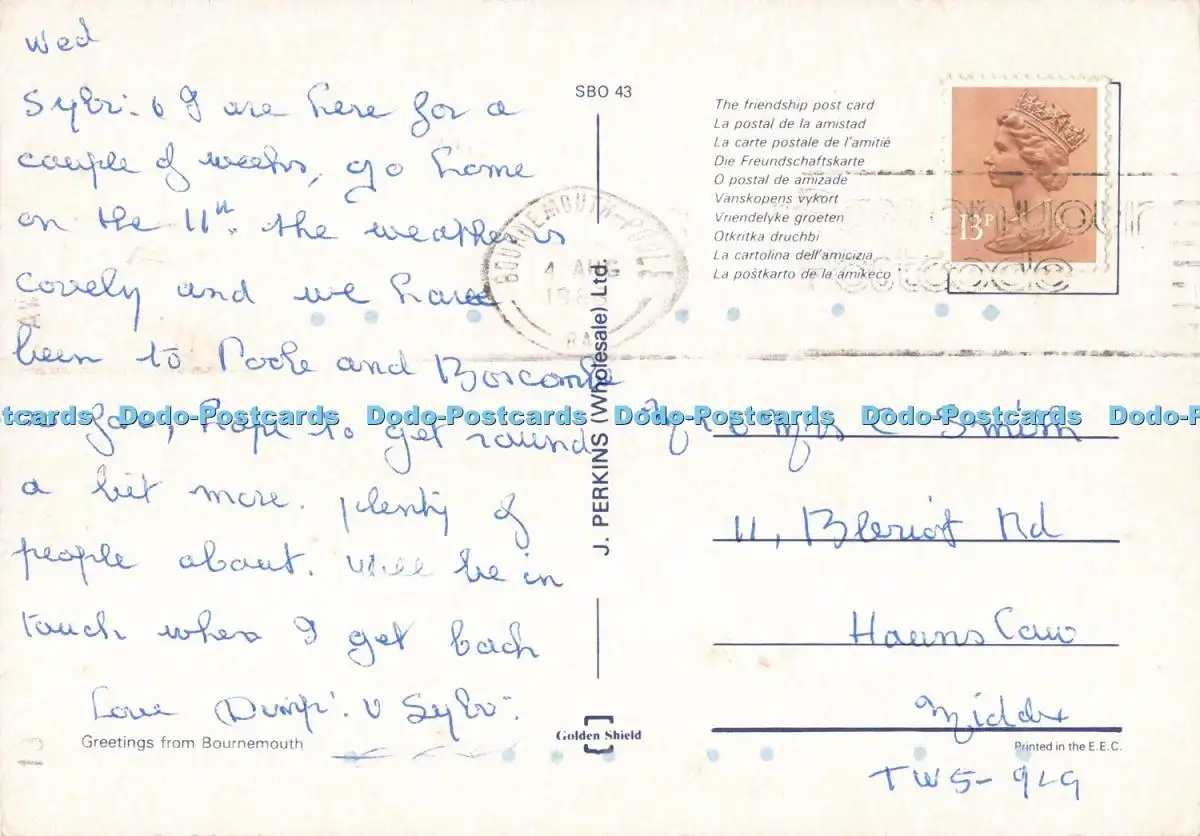 Wed
Sylv: & I are here for a
couple of weeks, go home
on the 11th. the weather is
Lovely and we have
been to Poole and Boscombe
so far, hope to get round
a bit more. plenty of
people about. Will be in
touch when I get back
Love Dump: & Sylv:
Greetings from Bournemouth
SBO 43
J. PERKINS (Wholesale) Ltd.
Golden Shield
The friendship post card
La postal de la amistad
La carte postale de l'amitié
Die Freundschaftskarte
O postal de amizade
Vänskopens vykort
Vriendelyke groeten
Otkritka druchbi
La cartolina dell'amicizia
La poŝtkarto de la amikeco
13P
BOURNEMOUTH-POOLE
4 AUG
your
Postcode
Mr & Mrs C Smith
11, Bleriot Rd
Hounslow
Middx
Printed in the E.E.C.
TW5-9LG
Dodo-Postcards Dodo-Postcards Dodo-Postcards Dodo-Postcards